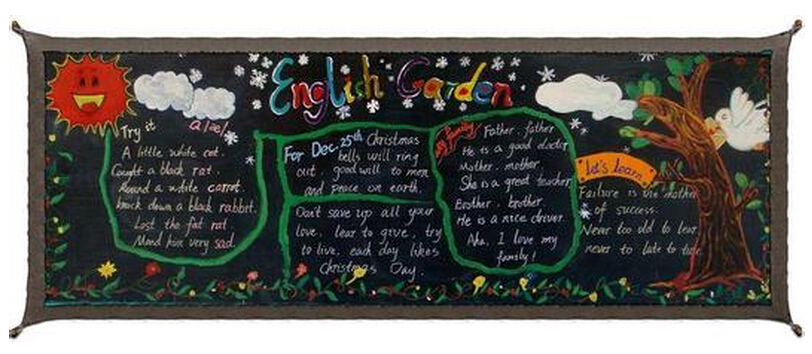 English Garden
Try it
a/ae/
A little white cat.
Caught a black rat.
Round a white carrot.
knock down a black rabbit.
Lost the fat rat.
Mand him very sad.
For Dec. 25th Christmas
bells will ring
out. good will to men
and peace on earth.
Don't save up all your
love, lear to give, try
to live, each day likes
Christmas Day.
My family
Father. father
He is a good doctor
Mother. mother.
She is a great teacher
Brother. brother.
He is a nice driver.
Aha. I love my
family!
let's learn
Failure is the mother
of success.
Never too old to lear
never to late to